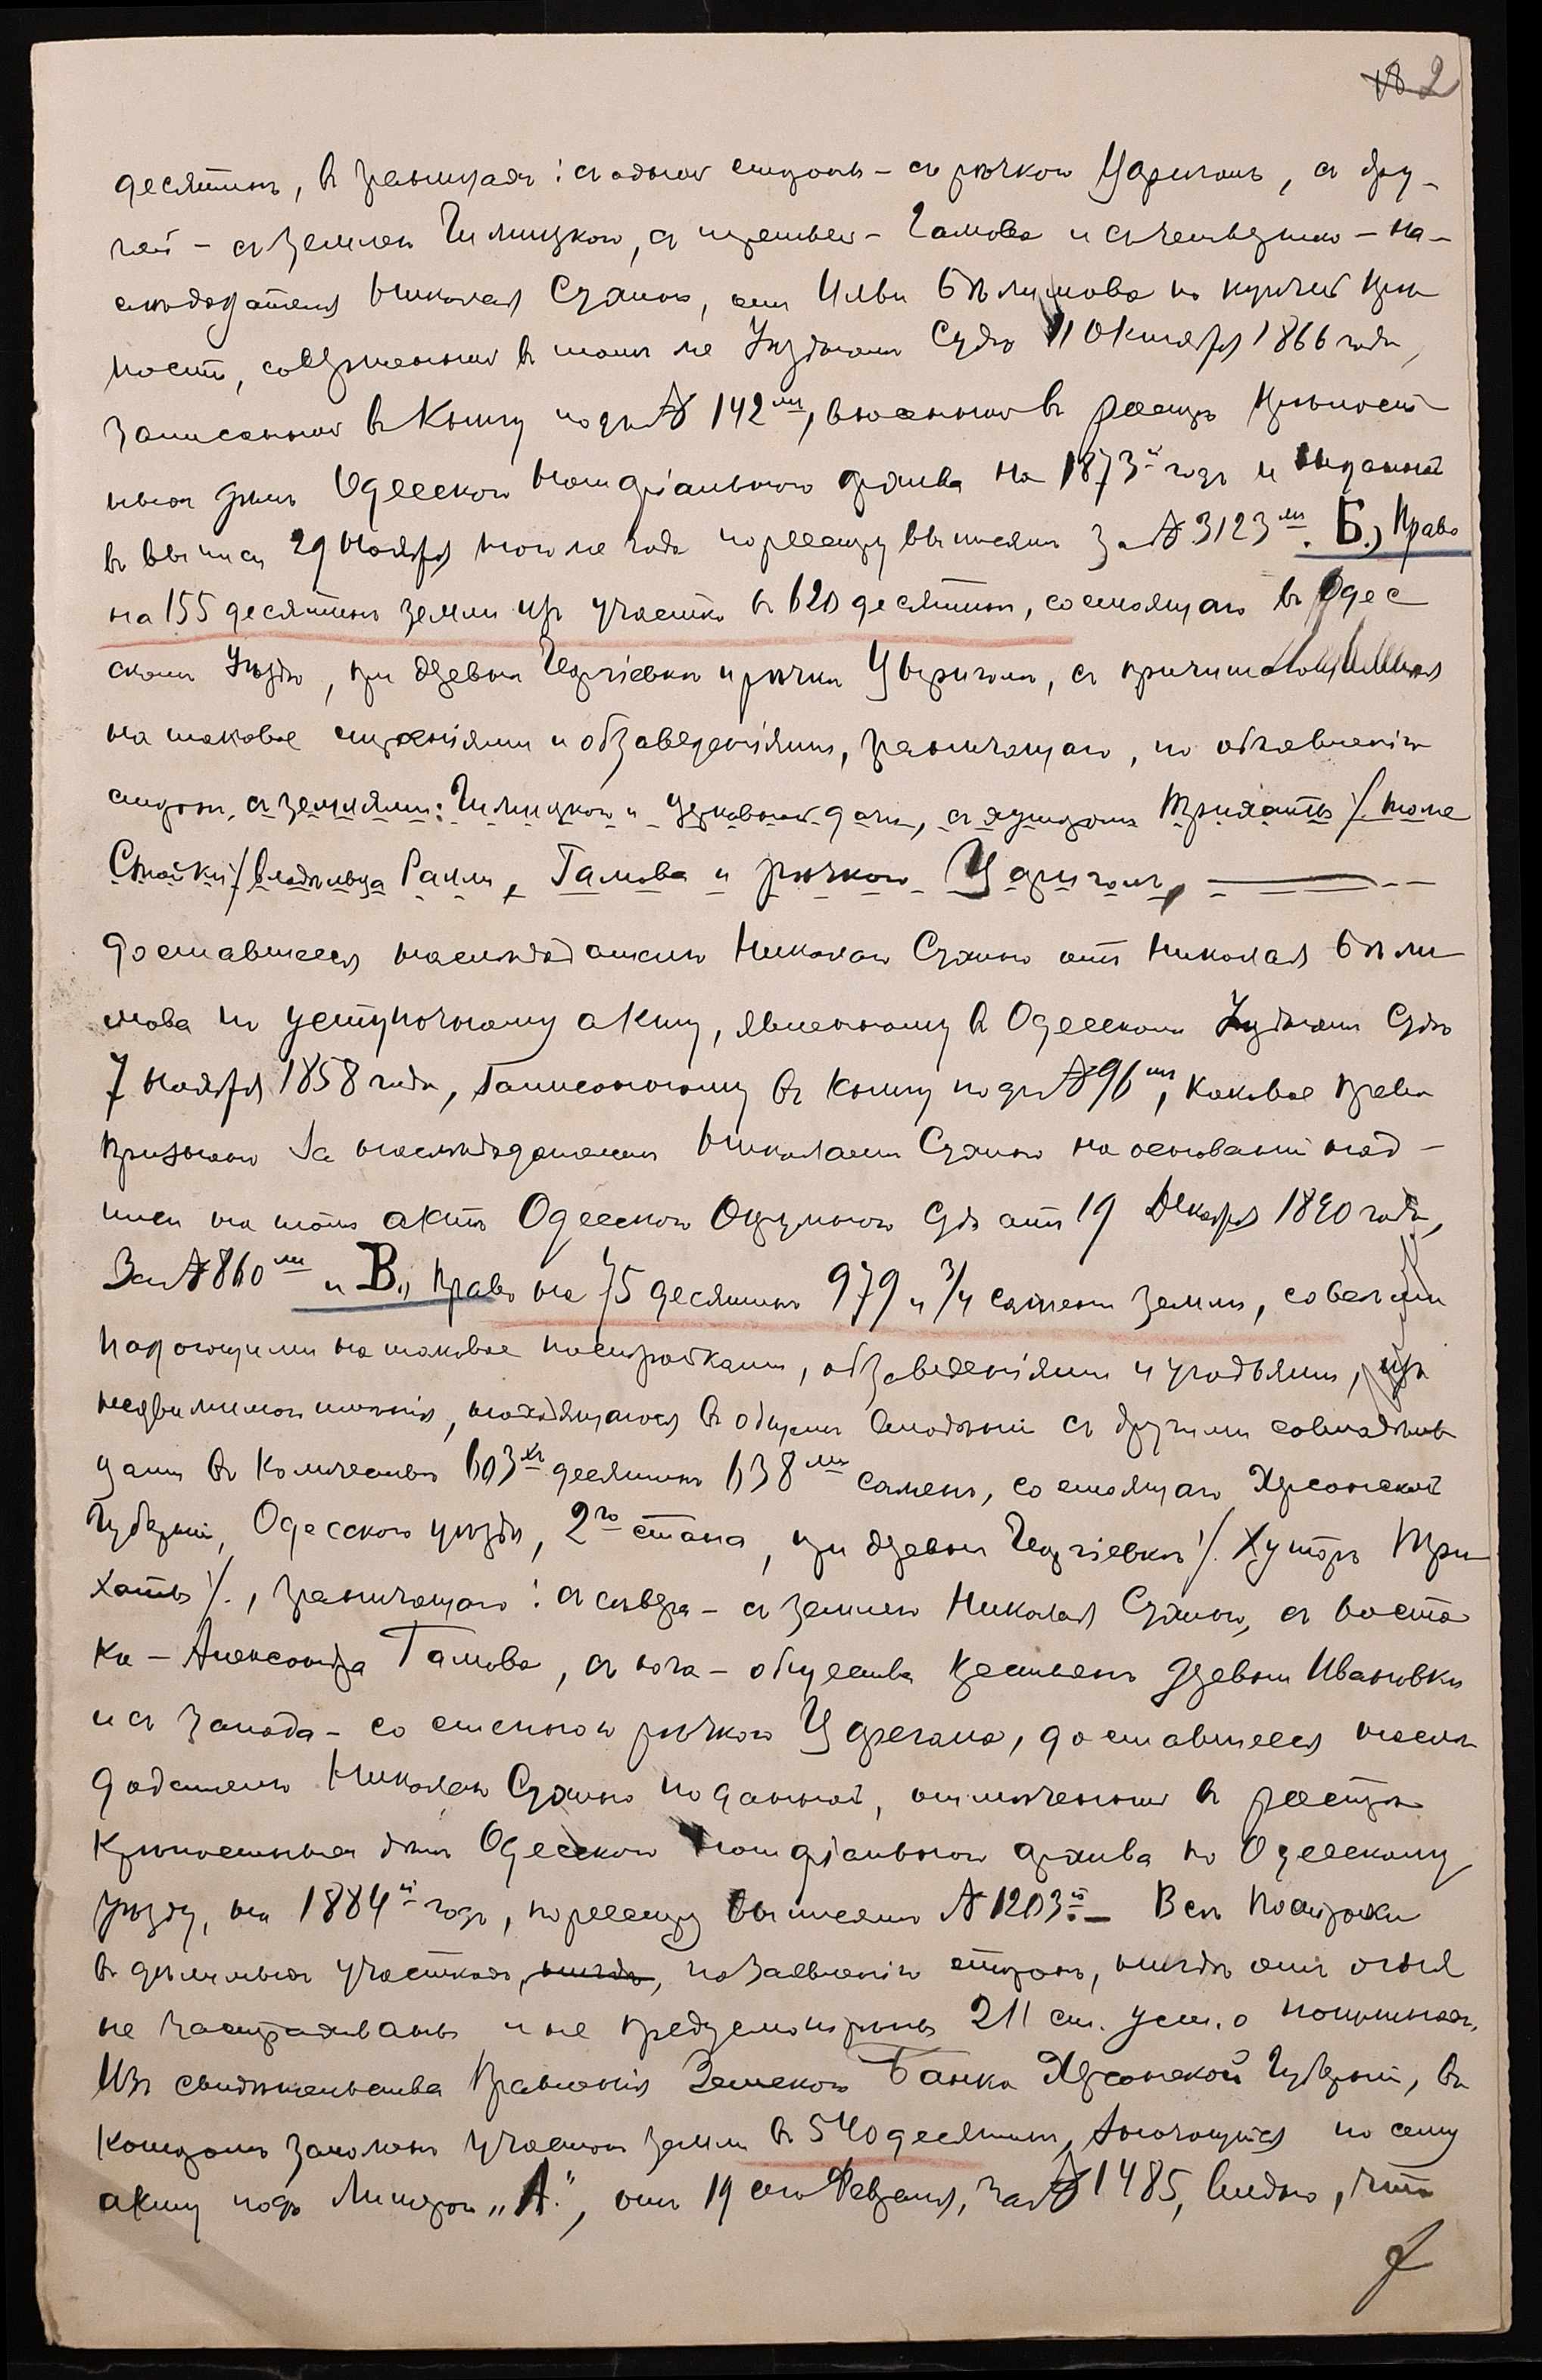 2
десятинъ, въ границахъ: съ одной стороны - съ рѣчкою Царигомъ, съ дру-
гой - съ землею Чилицкаго, съ третьей - Гамова и съ четвертой - на-
слѣдодателя Николая Сухино, отъ Ильи Бѣлимова по купчей крѣ
пости, совершенной въ томъ же Уѣздномъ Судѣ 11 Октября 1866 года,
записанной въ книгу подъ № 142мъ, внесенной въ реестръ крѣпост
ныхъ дѣлъ Одесскаго Нотаріальнаго архива на 1873й годъ и выданной
въ выписи 29 Ноября того же года по реестру выписямъ за № 3123мъ. Б.) Право
на 155 десятинъ земли изъ участка въ 620 десятинъ, состоящаго въ Одес
скомъ Уѣздѣ, при деревни Георгіевкѣ и рѣчки Царигомъ, съ причитающимися
на таковое строеніями и обзаведеніями, граничащаго, по объявленію
сторонъ, съ землями: Чилицкаго и церковной дачи, съ хуторомъ Трихаты /. тоже
Стойки/ владѣльца Раллы, Гамова и рѣчкою Царигомъ,
доставшееся наслѣдодателю Николаю Сухино отъ Николая Бѣли
мова по уступочному акту, явленному въ Одесскомъ Уѣздномъ Судѣ
7 Ноября 1858 года, записанному въ книгу подъ № 96мъ, каковое право
признано за наслѣдодателемъ Николаемъ Сухино на основаніи над-
писи на томъ актѣ Одесскаго Окружнаго Суда отъ 19 Декабря 1890 года,
за № 860мъ и В.) Право на 75 десятинъ 979 и 3/4 сажени земли, со всѣми
падающими на таковое постройками, обзаведеніями и угодьями, изъ
недвижимаго имѣнія, находящагося въ общемъ владѣніи съ другими совладѣль
цами въ количествѣ 603хъ десятинъ 638ми сажень, состоящаго Херсонской
губерніи, Одесскаго уѣзда, 2го стана, при деревни Георгіевкѣ /. Хуторъ Три
хаты /., граничащаго: съ сѣвера - съ землею Николая Сухино, съ восто
ка - Александра Гамова, съ юга - общества крестьянъ деревни Ивановки
и съ запада - со степною рѣчкою Царегама, доставшееся наслѣ
додателю Николаю Сухино по данной, отмѣченной въ реестрѣ
крѣпостныхъ дѣлъ Одесскаго Нотаріальнаго архива по Одесскому
уѣзду, на 1884й годъ, по реестру выписямъ № 1203й. - Всѣ постройки
въ дѣлимыхъ участкахъ, по заявленію сторонъ, нигдѣ отъ огня
не застрахованы и не предусмотрены 211 ст. уст. о пошлинахъ.
Изъ свидѣтельства Правленія Земскаго Банка Херсонской Губерніи, въ
которомъ заложенъ участокъ земли въ 540 десятинъ, значущійся по сему
акту подъ литерою „А.", отъ 19 сего Февраля, за № 1485, видно, что